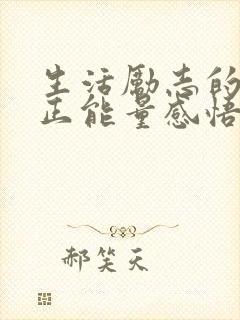 生活励志的
正能量感悟
郝笑天